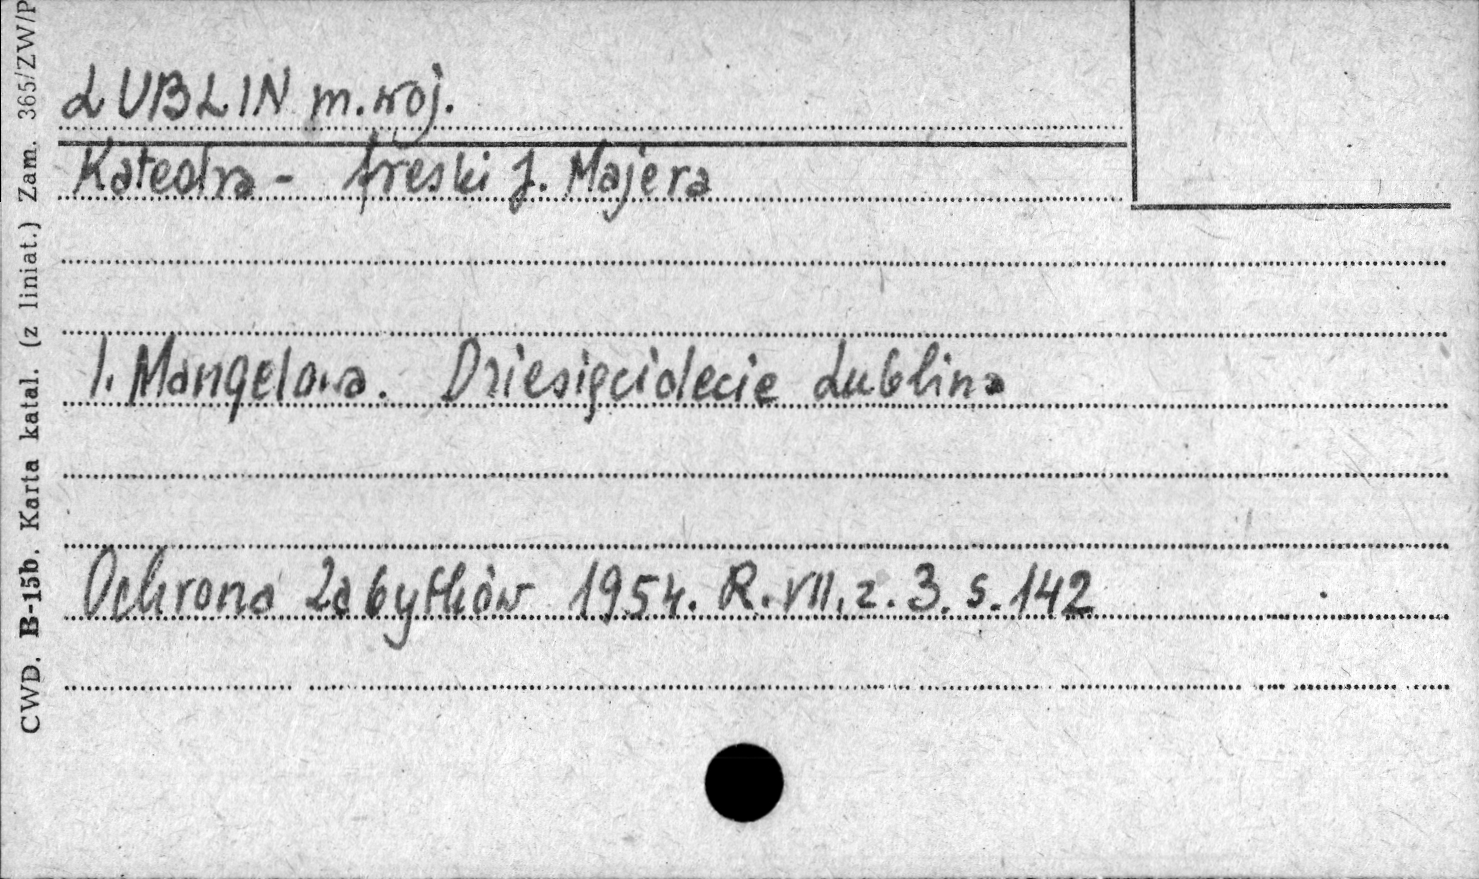 LUBLIN m. woj.
Katedra - freski J. Majera
I. Mangelowa. Dziesięciolecie Lublina
Ochrona Zabytków 1954. R. VII, z. 3. s. 142
CWD. B-15b. Karta katal. (z liniat.) Zam. 365/ZW/P